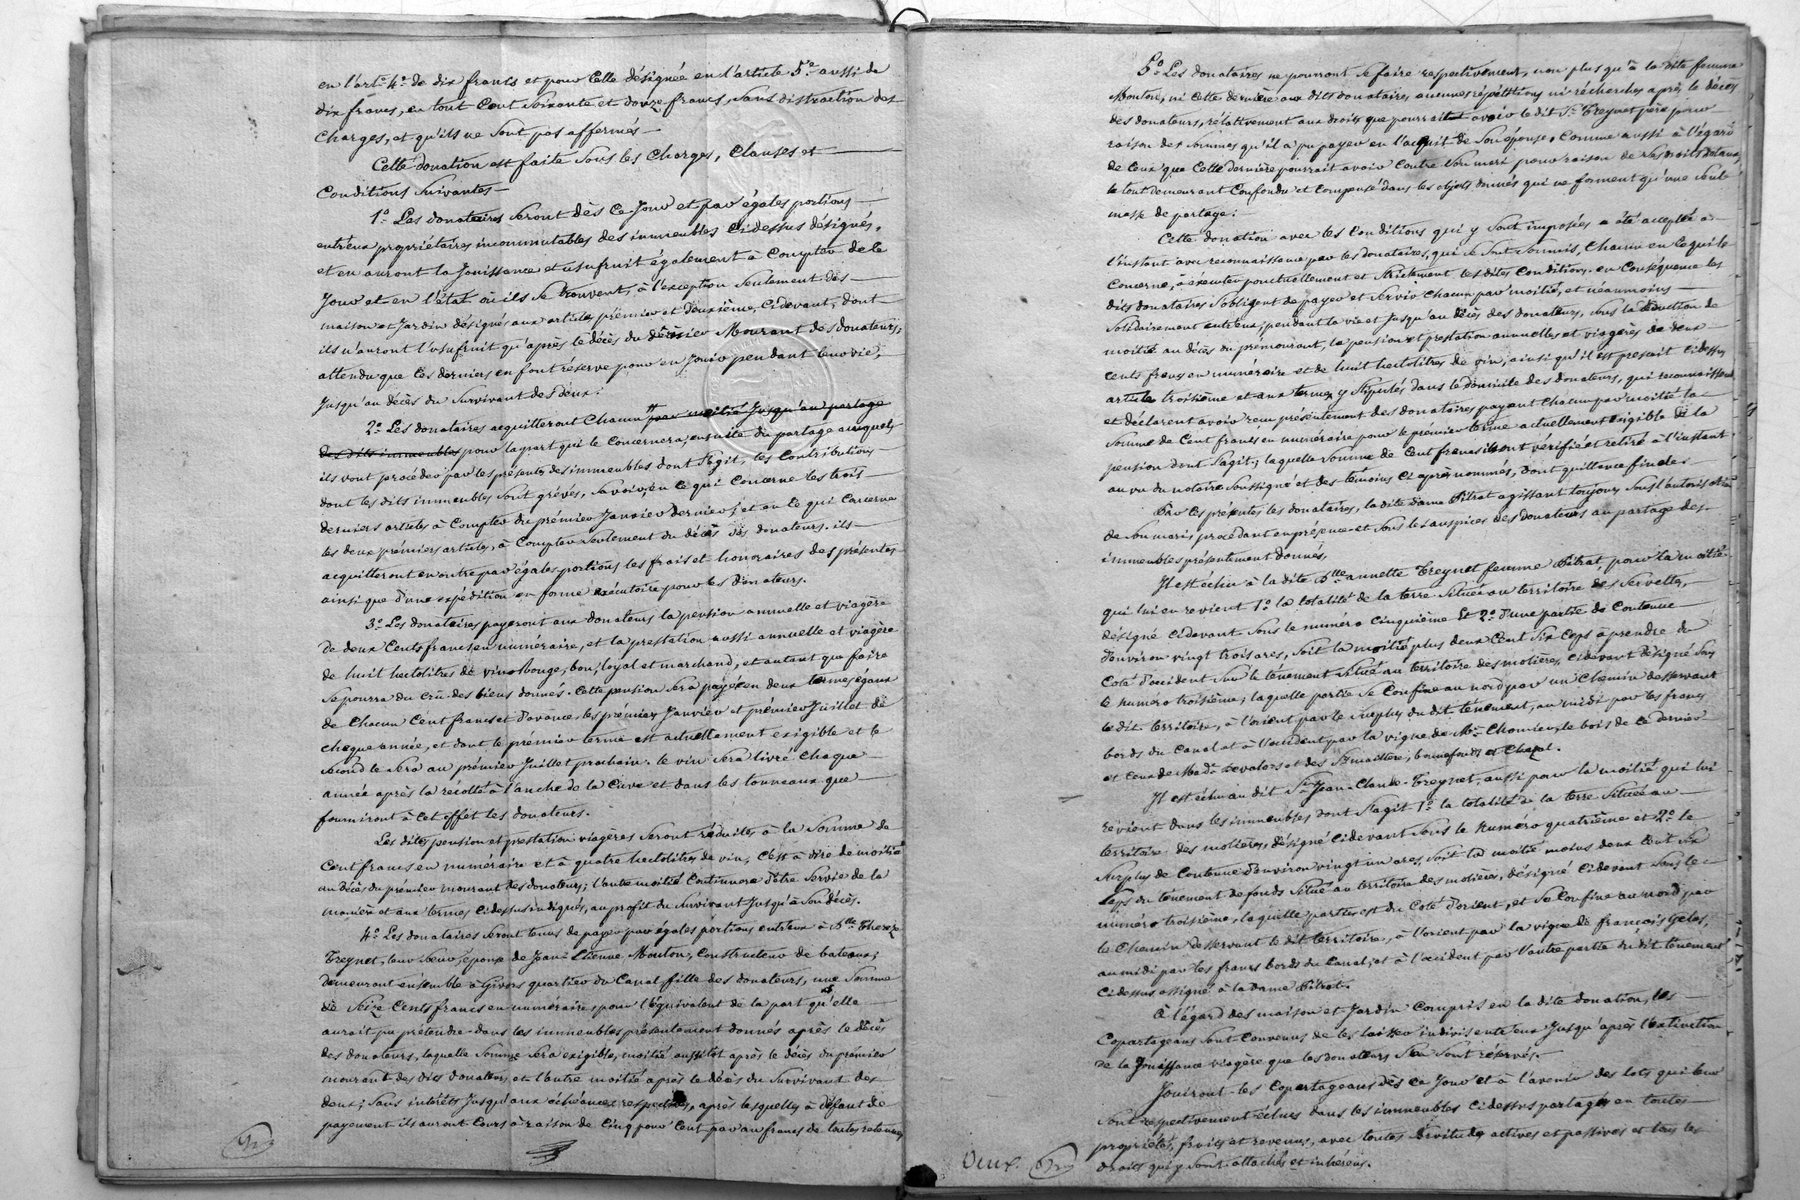 en l'art. 4e de dix francs et pour celle désignée en l'article 5e aussi de
dix francs, en tout cent soixante et douze francs, sans distraction des
charges, et qu'ils ne sont pas affermés —
Cette donation est faite sous les charges, clauses et —
conditions suivantes —
1º Les donataires seront dès ce jour et par égales portions —
entr'eux propriétaires incommutables des immeubles cidessus désignés,
et en auront la jouissance et usufruit également à compter de ce
jour et en l'état où ils se trouvent, à l'exception seulement des —
maison et jardin désignés aux articles prémier et deuxième, cidevant, dont —
ils n'auront l'usufruit qu'après le décès du dernier mourant des donateurs,
attendu que ces derniers en font réserve pour en jouir pendant leur vie,
jusqu'au décès du survivant des deux.
2º Les donataires acquitteront chacun par moitié jusqu'au partage
des dits immeubles pour la part qui le concernera, ensuite du partage auquel
ils vont procéder par les présentes des immeubles dont s'agit, les contributions —
dont les dits immeubles sont grévés, savoir, en ce qui concerne les trois —
derniers articles à compter du prémier janvier dernier, et en ce qui concerne
les deux prémiers articles, à compter seulement du décès des donateurs. ils —
acquitteront en outre par égales portions les frais et honoraires des présentes
ainsi que d'une expédition en forme exécutoire pour les donateurs.
3º Les donataires payeront aux donateurs la pension annuelle et viagère
de deux cents francs en numéraire, et la prestation aussi annuelle et viagère
de huit hectolitres de vin rouge, bon, loyal et marchand, et autant que faire
se pourra du crû des biens donnés. Cette pension sera payée en deux termes égaux
de chacun cent francs et d'avance, les prémier janvier et prémier juillet de
chaque année, et dont le prémier terme est actuellement exigible et le
second le sera au prémier juillet prochain. le vin sera livré chaque —
année après la récolte à l'anche de la cuve et dans les tonneaux que —
fourniront à cet effet les donateurs.
Les dites pension et prestation viagères seront réduites à la somme de
cent francs en numéraire et à quatre hectolitres de vin, c'est à dire de moitié
au décès du premier mourant des donateurs; l'autre moitié continuera d'être servie de la
manière et aux termes cidessus indiqués, au profit du survivant jusqu'à son décès.
4º Les donataires seront tenus de payer par égales portions entr'eux à Dlle Thérèze
Treynet, leur sœur, épouse de Jean Etienne Mouton, constructeur de bateaux,
demeurant ensemble à Givors quartier du Canal, fille des donateurs, une somme
de seize cents francs en numéraire, pour l'équivalent de la part qu'elle —
aurait pu prétendre dans les immeubles présentement donnés après le décès
des donateurs, laquelle somme sera exigible, moitié aussitôt après le décès du prémier
mourant des dits donateurs, et l'autre moitié après le décès du survivant des —
deux; sans intérêts jusqu'aux échéances respectives, après lesquelles à défaut de
payement ils auront cours à raison de cinq pour cent par an francs de toutes retenues
5º Les donataires ne pourront se faire respectivement, non plus qu'à la dite femme
Mouton, ni cette dernière aux dits donataires, aucunes répétitions ni recherches après le décès
des donateurs, rélativement aux droits que pourrait avoir le dit Sr Treynet père pour
raison des sommes qu'il a pu payer en l'acquit de son épouse, comme aussi à l'égard
de ceux que cette dernière pourrait avoir contre son mari pour raison de ses droits dotaux,
le tout demeurant confondu et compensé dans les objets donnés qui ne forment qu'une seule
masse de partage.
Cette donation avec les conditions qui y sont imposées a été acceptée à —
l'instant avec reconnaissance par les donataires, qui se sont soumis, chacun en ce qui le
concerne, à exécuter ponctuellement et strictement les dites conditions. en conséquence les
dits donataires s'obligent de payer et servir chacun par moitié, et néanmoins —
solidairement entr'eux, pendant la vie et jusqu'au décès des donateurs, sous la réduction de
moitié au décès du prémourant, la pension et prestation annuelles et viagères de deux —
cents francs en numéraire et de huit hectolitres de vin, ainsi qu'il est prescrit cidessus
article troisième et aux termes y stipulés, dans le domicile des donateurs, qui reconnaissent
et déclarent avoir reçu présentement des donataires payant chacun par moitié la —
somme de cent francs en numéraire pour le prémier terme actuellement exigible de la
pension dont s'agit; laquelle somme de cent francs ils ont vérifié et retiré à l'instant
au vu du notaire soussigné et des témoins ci après nommés, dont quittance finale —
Par les présentes les donataires, la dite dame Pitrat agissant toujours sous l'autorisation
de son mari, procédant en présence et sous les auspices des donateurs au partage des —
immeubles présentement donnés,
Il est échu à la dite Dlle annette Treynet femme Pitrat, pour la moitié —
qui lui en revient 1º la totalité de la terre située au territoire des Servelles,
désigné cidevant sous le numéro cinquième Et 2º d'une partie de contenue
d'environ vingt trois ares, soit la moitié plus deux cent six ceps à prendre du
coté d'occident sur le ténement situé au territoire des molières, cidevant désigné sous
le numéro troisième, laquelle partie se confine au nord par un chemin desservant
le dit territoire, à l'orient par le surplus du dit ténement, au midi par les francs
bords du canal et à l'occident par la vigne de Mr. Chomier, le bois de ce dernier
et ceux de Mad.
Il est échu au dit Sr Jean-Claude Treynet, aussi pour la moitié qui lui
revient dans les immeubles dont s'agit 1º la totalité de la terre située au —
territoire des molières, désigné cidevant sous le numéro quatrième et 2º le
surplus de contenue d'environ vingt un ares, soit la moitié moins deux cent six
ceps du ténement de fonds situé au territoire des molières, désigné cidevant sous le —
numéro troisième, laquelle partie est du coté d'orient, et se confine au nord par
le chemin desservant le dit territoire, à l'orient par la vigne de françois Gelas,
au midi par les francs bords du canal, et à l'occident par l'autre partie du dit ténement
cidessus assigné à la dame Pitrat.
A l'égard des maison et jardin compris en la dite donation, les —
copartageans sont convenus de les laisser indivis entr'eux jusqu'après l'extinction
de la jouissance viagère que les donateurs s'en sont réservés. —
Jouiront les copartageans dès ce jour et à l'avenir des lots qui leur
sont respectivement échus dans les immeubles cidessus partagés en toutes —
propriétés, fruits et revenus, avec toutes servitudes actives et passives et tous les
droits qui y sont attachés et inhérens.